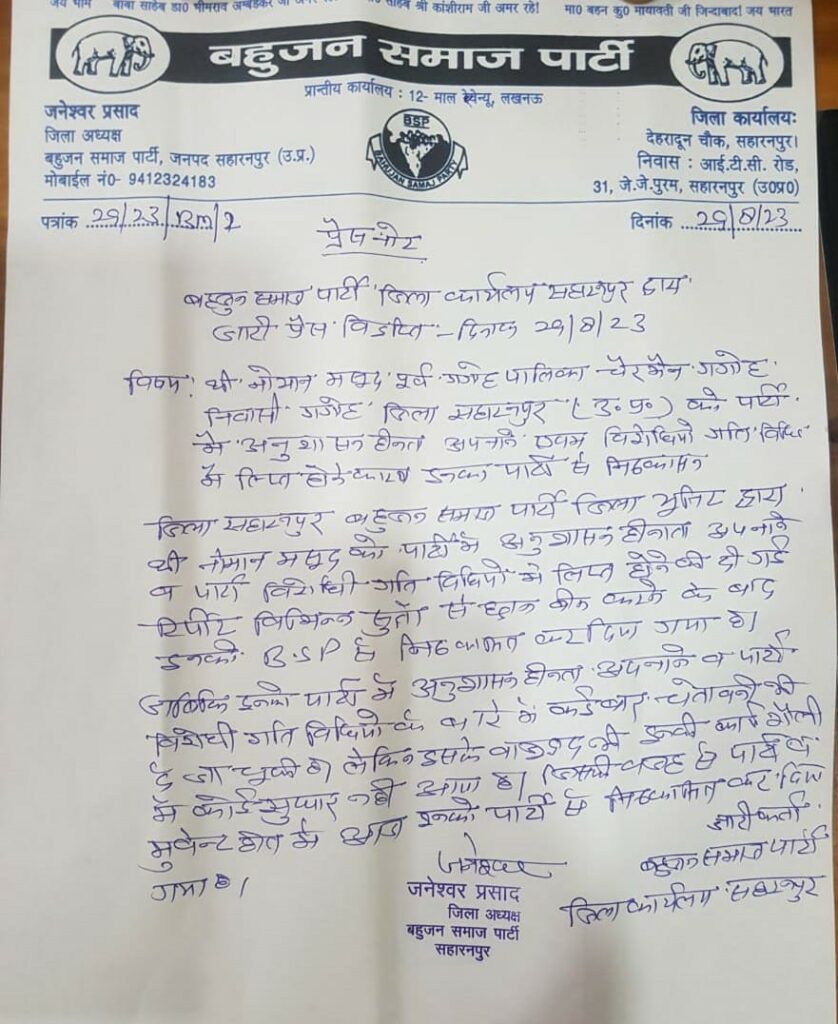 जय भीम बाबा साहेब डा0 भीमराव अम्बेडकर जी अमर रहे! मा0 साहेब श्री कांशीराम जी अमर रहे! मा0 बहन कु0 मायावती जी जिन्दाबाद! जय भारत
बहुजन समाज पार्टी
प्रान्तीय कार्यालय : 12- माल ऐवेन्यू, लखनऊ
जनेश्वर प्रसाद
जिला अध्यक्ष
बहुजन समाज पार्टी, जनपद सहारनपुर (उ.प्र.)
मोबाईल नं0- 9412324183
BSP
BAHUJAN SAMAJ PARTY
जिला कार्यालयः
देहरादून चौक, सहारनपुर।
निवास : आई.टी.सी. रोड,
31, जे.जे.पुरम, सहारनपुर (उ0प्र0)
पत्रांक 29/23/BM/2
दिनांक 29/8/23
प्रैस नोट
बहुजन समाज पार्टी जिला कार्यालय सहारनपुर द्वारा
जारी प्रैस विज्ञप्ति - दिनांक 29/8/23
विषय: श्री नोमान मसूद पूर्व गंगोह पालिका चैरमैन गंगोह
निवासी गंगोह जिला सहारनपुर (उ.प्र.) को पार्टी
में अनुशासन हीनता अपनाने एवम विरोधियो गति विधि
में लिप्त होने के कारण इनका पार्टी से निष्कासन
जिला सहारनपुर बहुजन समाज पार्टी जिला यूनिट द्वारा
श्री नोमान मसूद को पार्टी में अनुशासन हीनता अपनाने
व पार्टी विरोधी गति विधियो में लिप्त होने की दी गई
रिर्पोट विभिन्न सुत्रो से छान बीन करने के बाद
इनको B.S.P से निष्कासित कर दिया गया है।
जबकि इनको पार्टी में अनुशासन हीनता अपनाने व पार्टी
विरोधी गति विधियो के बारे में कई बार चेतावनी भी
दी जा चुकी है। लेकिन इसके बावजूद भी इनकी कार्य शैली
में कोई सुधार नही आया है। जिसकी वजह से पार्टी व
मुवमेन्ट हित में आज इनको पार्टी से निष्कासित कर दिया
गया है।
जारी कर्ता
बहुजन समाज पार्टी
जिला कार्यालय सहारनपुर
जनेश्वर
जनेश्वर प्रसाद
जिला अध्यक्ष
बहुजन समाज पार्टी
सहारनपुर